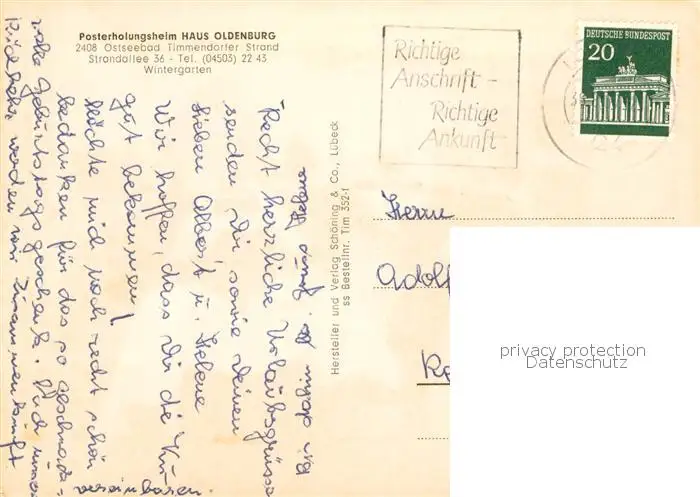 Posterholungsheim HAUS OLDENBURG
2408 Ostseebad Timmendorfer Strand
Strandallee 36 - Tel. (04503) 22 43
Wintergarten
Richtige
Anschrift -
Richtige
Ankunft
DEUTSCHE BUNDESPOST
20
Hersteller und Verlag Schöning & Co., Lübeck
ss Bestellnr. Tim 352-f
Herrn
Adolf
privacy protection
Datenschutz
Recht herzliche Urlaubsgrüsse
senden Dir sowie Deinen
Lieben Albert u. Helene
Wir hoffen, dass Dir die Kur
gut bekommen!
Möchte mich noch recht schön
bedanken für das so geschmack-
volle Geburtstagsgeschenk. Nach unserer
Rückkehr werden wir Zusammenkunft
vereinbaren.
Bis dahin